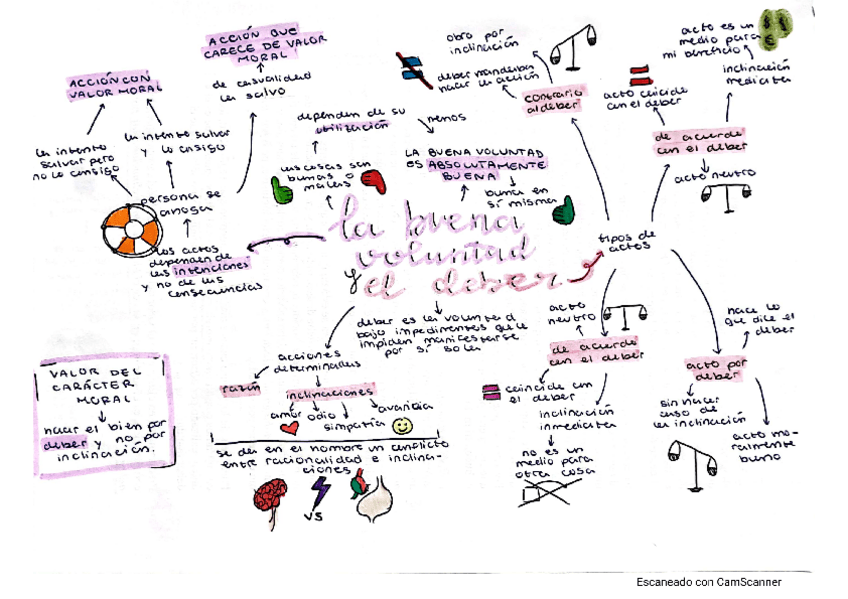 ACCIÓN CON
VALOR MORAL
ACCIÓN QUE
CARECE DE VALOR
MORAL
de casualidad
la salvo
la intento
salvar pero
no lo consigo
la intento salvar
y lo consigo
persona se
ahoga
los actos
dependen de
las intenciones
y no de las
consecuencias
dependen de su
utilización
menos
las cosas son
buenas o
malas
LA BUENA VOLUNTAD
ES ABSOLUTAMENTE
BUENA
buena en
sí misma
la buena
voluntad
y el deber
obro por
inclinación
deber mandaba
hacer la acción
contrario
al deber
acto es un
medio para
mi beneficio
inclinación
mediata
acto coicide
con el deber
de acuerdo
con el deber
acto neutro
tipos de
actos
VALOR DEL
CARÁCTER
MORAL
hacer el bien por
deber y no por
inclinación.
deber es la voluntad
bajo impedimentos que le
impiden manifestarse
por sí sola
acciones
determinadas
razón
inclinaciones
amor odio
simpatía
avaricia
se da en el hombre un conflicto
entre racionalidad e inclina-
ciones
VS
acto
neutro
de acuerdo
con el deber
coincide con
el deber
inclinación
inmediata
no es un
medio para
otra cosa
hace lo
que dice el
deber
acto por
deber
sin hacer
caso de
la inclinación
acto mo-
ralmente
bueno
Escaneado con CamScanner